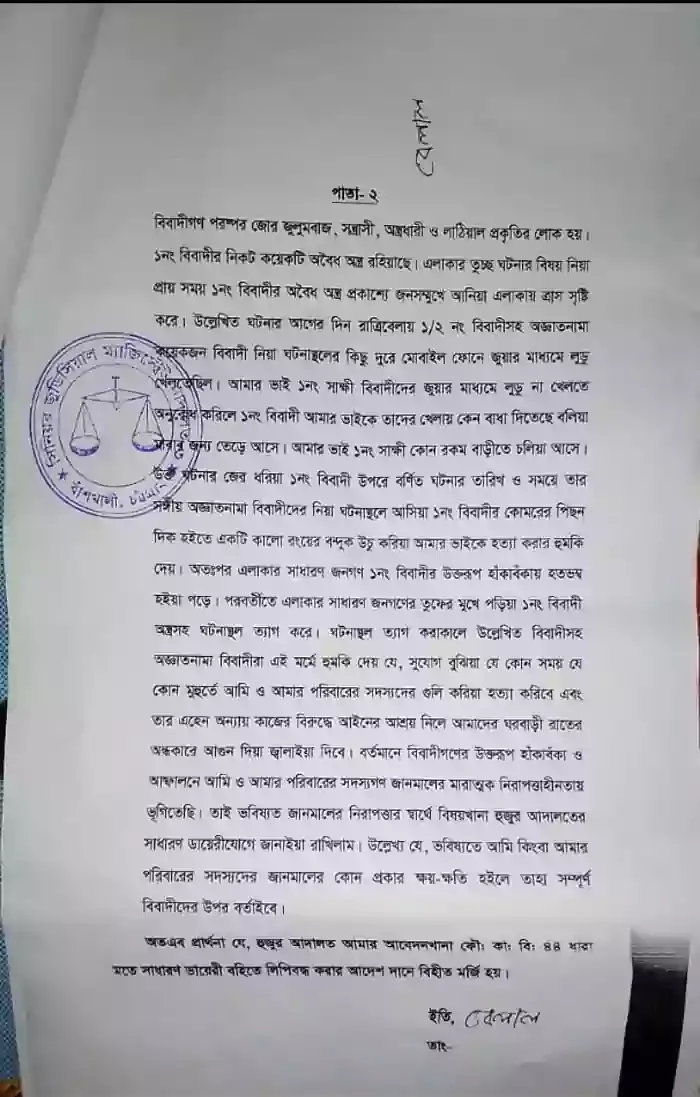 বেলাল
পাতা- ২
বিবাদীগণ পরষ্পর জোর জুলুমবাজ, সন্ত্রাসী, অস্ত্রধারী ও লাঠিয়াল প্রকৃতির লোক হয়।
১নং বিবাদীর নিকট কয়েকটি অবৈধ অস্ত্র রহিয়াছে। এলাকার তুচ্ছ ঘটনার বিষয় নিয়া
প্রায় সময় ১নং বিবাদীর অবৈধ অস্ত্র প্রকাশ্যে জনসম্মুখে আনিয়া এলাকায় ত্রাস সৃষ্টি
করে। উল্লেখিত ঘটনার আগের দিন রাত্রিবেলায় ১/২ নং বিবাদীসহ অজ্ঞাতনামা
কয়েকজন বিবাদী নিয়া ঘটনাস্থলের কিছু দূরে মোবাইল ফোনে জুয়ার মাধ্যমে লুডু
খেলতেছিল। আমার ভাই ১নং সাক্ষী বিবাদীদের জুয়ার মাধ্যমে লুডু না খেলতে
অনুরোধ করিলে ১নং বিবাদী আমার ভাইকে তাদের খেলায় কেন বাধা দিতেছে বলিয়া
মারার জন্য তেড়ে আসে। আমার ভাই ১নং সাক্ষী কোন রকম বাড়ীতে চলিয়া আসে।
উক্ত ঘটনার জের ধরিয়া ১নং বিবাদী উপরে বর্ণিত ঘটনার তারিখ ও সময়ে তার
সঙ্গীয় অজ্ঞাতনামা বিবাদীদের নিয়া ঘটনাস্থলে আসিয়া ১নং বিবাদীর কোমরের পিছন
দিক হইতে একটি কালো রংয়ের বন্দুক উচু করিয়া আমার ভাইকে হত্যা করার হুমকি
দেয়। অতঃপর এলাকার সাধারণ জনগণ ১নং বিবাদীর উক্তরূপ হাঁকাবঁকায় হতভম্ব
হইয়া পড়ে। পরবর্তীতে এলাকার সাধারণ জনগণের তুফের মুখে পড়িয়া ১নং বিবাদী
অস্ত্রসহ ঘটনাস্থল ত্যাগ করে। ঘটনাস্থল ত্যাগ করাকালে উল্লেখিত বিবাদীসহ
অজ্ঞাতনামা বিবাদীরা এই মর্মে হুমকি দেয় যে, সুযোগ বুঝিয়া যে কোন সময় যে
কোন মুহুর্তে আমি ও আমার পরিবারের সদস্যদের গুলি করিয়া হত্যা করিবে এবং
তার এহেন অন্যায় কাজের বিরুদ্ধে আইনের আশ্রয় নিলে আমাদের ঘরবাড়ী রাতের
অন্ধকারে আগুন দিয়া জ্বালাইয়া দিবে। বর্তমানে বিবাদীগণের উক্তরূপ হাঁকাবঁকা ও
আষ্ফালনে আমি ও আমার পরিবারের সদস্যগণ জানমালের মারাত্মক নিরাপত্তাহীনতায়
ভূগিতেছি। তাই ভবিষ্যত জানমালের নিরাপত্তার স্বার্থে বিষয়খানা হুজুর আদালতের
সাধারণ ডায়েরীযোগে জানাইয়া রাখিলাম। উল্লেখ্য যে, ভবিষ্যতে আমি কিংবা আমার
পরিবারের সদস্যদের জানমালের কোন প্রকার ক্ষয়-ক্ষতি হইলে তাহা সম্পূর্ণ
বিবাদীদের উপর বর্তাইবে।
অতএব প্রার্থনা যে, হুজুর আদালত আমার আবেদনখানা ফৌ: কা: বি: ৪৪ ধারা
মতে সাধারণ ডায়েরী বহিতে লিপিবদ্ধ করার আদেশ দানে বিহীত মর্জি হয়।
ইতি, বেলাল
তাং-
সিনিয়র জুডিসিয়াল ম্যাজিস্ট্রেট
বাঁশখালী, চট্টগ্রাম